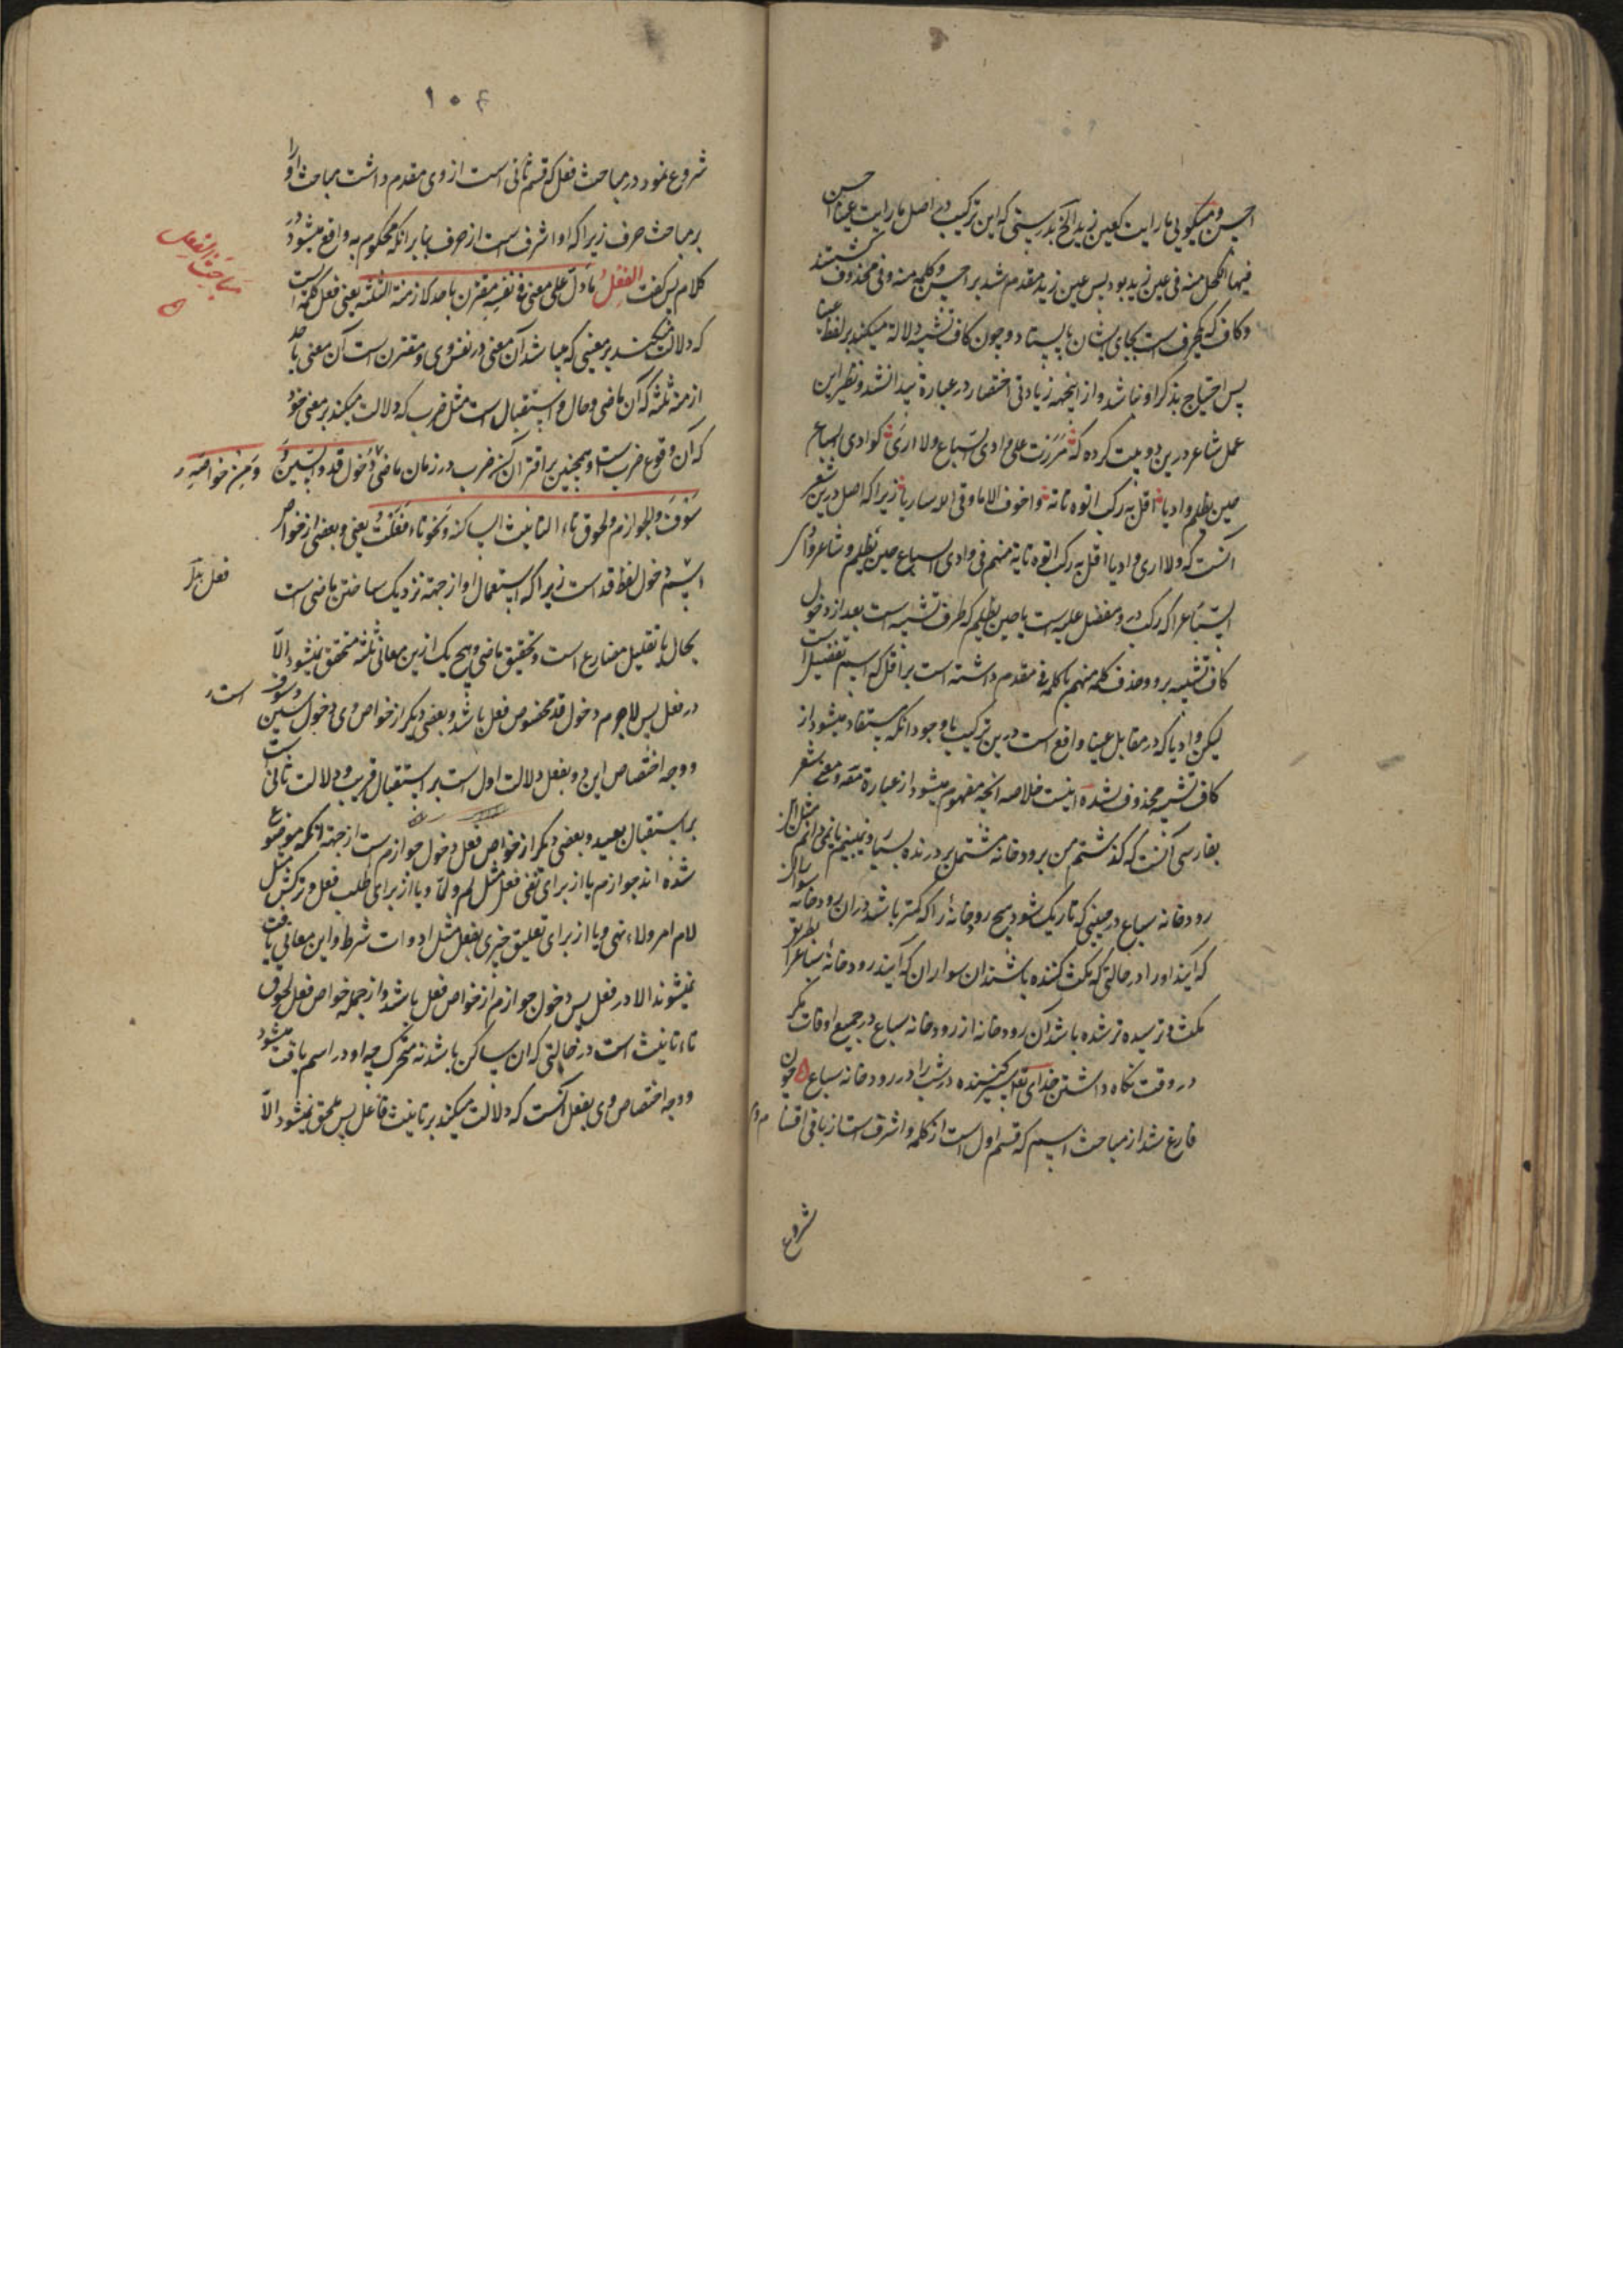 احسن و میکویی ما رایت کعین زید الخ بدرستی که این ترکیب در اصل ما رایت عینا احسن
فیها الکحل منه فی عین زید بود پس عین زید مقدم شد بر احسن و کلمه منه و فی محذوف گشتند
و کاف که یکحرف است بجای ایشان بایستاد و چون کاف تشبیه دلالة میکند بر لفظ عینا
پس احتیاج بذکر او نباشد و از اینجهه زیادتی اختصار در عبارة پیدا نشد و نظیر این
عمل شاعر درین دو بیت کرده که مررت علی وادی السباع ولا اری کوادی السباع
حین یظلم وادیا اقل به رکب اتوه تایة واخوف الا ما وقی الله ساریا زیرا که اصل درین شعر
آنست که ولا اری وادیا اقل به رکب اتوه تایة منهم فی وادی السباع حین یظلم و شاعر وادی
السباع را که رکب در و مفضل علیه است با حین یظلم که ظرف تشبیه است بعد از دخول
کاف تشبیه برو و حذف کلمه منهم با کلمه فی مقدم داشته است بر اقل که اسم تفضیل است
لیکن وادیا که در مقابل عینا واقع است درین ترکیب با وجود انکه مستفاد میشود از
کاف تشبیه محذوف نشده اینست خلاصه انچه مفهوم میشود از عبارة متن و معنی شعر
بفارسی آنست که گذشتم من برودخانه مشتمل بر درنده بسیار و نبینم یا نمی دانم مثل آن
رودخانه سباع در حینی که تاریک شود هیچ رودخانۀ را که کمتر باشد دران رودخانه سواران
که آیند او را در حالتی که مکث کننده باشند ان سواران که آیند رودخانۀ سباع را بطریق
مکث و ترسیده تر شده باشد آن رودخانه از رودخانه سباع در جمیع اوقات مکر
در وقت نکاه داشتن خدای تعالی سیر کننده در شب را در رودخانه سباع ۵ چون
فارغ شد از مباحث اسم که قسم اول است از کلمه و اشرف است از باقی اقسام
شروع
۱۰۴
شروع نمود در مباحث فعل که قسم ثانی است از وی مقدم داشت مباحث او را
بر مباحث حرف زیرا که او اشرف است از حرف بنابر انکه محکوم به واقع میشود در
مباحث الفعل
کلام پس کفت الفعل ما دل علی معنی فی نفسه مقترن باحد الازمنة الثلثة یعنی فعل کلمه ایست
که دلالت میکند بر معنیی که میباشد آن معنی در نفس وی و مقترن است آن معنی باحد
ازمنه ثلثه که آن ماضی و حال و استقبال است مثل ضرب که دلالت میکند بر معنی خود
که آن وقوع ضربست و همچنین بر اقتران آن ضرب در زمان ماضی و من خواصه دخول قد و السین و
سوف و الجوازم و لحوق تاء التانیث الساکنة و نحو تاء فعلت یعنی و بعضی از خواص
فعل
اسم دخول لفظ قد است زیرا که استعمال او از جهة نزدیک ساختن ماضی است
بحال یا تقلیل مضارع است و تحقیق ماضی و هیچ یک ازین معانی ثلثه متحقق نمیشود الا
در فعل پس لاجرم دخول قد مخصوص فعل باشد و بعضی دیکر از خواص وی دخول سین و سوف است
و وجه اختصاص این دو بفعل دلالت اول است بر استقبال قریب و دلالت ثانیست
بر استقبال بعید و بعضی دیکر از خواص فعل دخول جوازم است از جهة انکه موضوع
شده اند جوازم یا از برای نفی فعل مثل لم و لما و یا از برای طلب فعل و ترکش مثل
لام امر و لاء نهی و یا از برای تعلیق چیزی بفعل مثل ادوات شرط و این معانی یافت
نمیشوند الا در فعل پس دخول جوازم از خواص فعل باشد و از جمله خواص فعل لحوق
تاء تانیث است در حالتی که ان ساکن باشد نه متحرک چه او در اسم یافت میشود
و وجه اختصاص وی بفعل آنست که دلالت میکند بر تانیث فاعل پس ملحق نمیشود الا